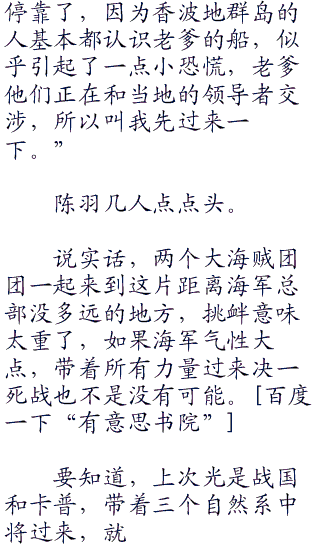 停靠了，因为香波地群岛的
人基本都认识老爹的船，似
乎引起了一点小恐慌，老爹
他们正在和当地的领导者交
涉，所以叫我先过来一
下。”
陈羽几人点点头。
说实话，两个大海贼团
团一起来到这片距离海军总
部没多远的地方，挑衅意味
太重了，如果海军气性大
点，带着所有力量过来决一
死战也不是没有可能。[百度
一下“有意思书院”]
要知道，上次光是战国
和卡普，带着三个自然系中
将过来，就